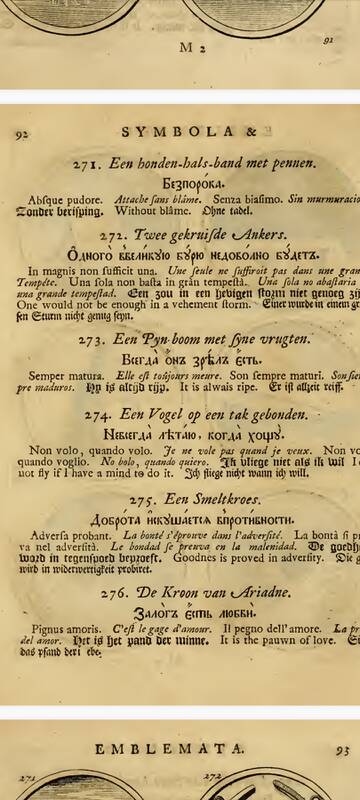 M 2
91
92
SYMBOLA &
271. Een honden-hals-band met pennen.
Безпорока.
Absque pudore. Attache sans blâme. Senza biasimo. Sin murmuracio
Zonder berisping. Without blâme. Ohne tadel.
272. Twee gekruisde Ankers.
Ѻдного ввеликꙋю бꙋрю недоволно бꙋдетъ.
In magnis non sufficit una. Une seule ne suffiroit pas dans une gran
Tempête. Una sola non basta in grân tempestâ. Una sola no abastaria
una grande tempestad. Een zou in een hevigen storm niet genoeg zij
One would not be enough in a vehement storm. Einer wurde in einem gr
sen Sturm nicht genug seyn.
273. Een Pyn-boom met syne vrugten.
Всегда онъ зрѣлъ есть.
Semper matura. Elle est toûjours meure. Son sempre maturi. Son sie
pre maduros. Hy is altijd rijp. It is alwais ripe. Er ist allzeit reiff.
274. Een Vogel op een tak gebonden.
Невсегда лѣтаю, когда хощꙋ.
Non volo, quando volo. Je ne vole pas quand je veux. Non vo
quando voglio. No bolo, quando quiero. Ik vliege niet als ik wil I
not fly if I have a mind to do it. Ich fliege nicht wann ich will.
275. Een Smeltkroes.
Доброта искушается впротивности.
Adversa probant. La bonté s'éprouve dans l'adversité. La bontà si pr
va nel adversità. Le bondad se preuva en la malenidad. De goedh
word in tegenspoed beproeft. Goodnes is proved in adversity. Die
wird in widerwertigkeit probiret.
276. De Kroon van Ariadne.
Залогъ есть любви.
Pignus amoris. C'est le gage d'amour. Il pegno dell'amore. La pr
del amor. Het is het pand der minne. It is the pauwn of love. Es
das pfand der liebe.
EMBLEMATA.
93
271
272